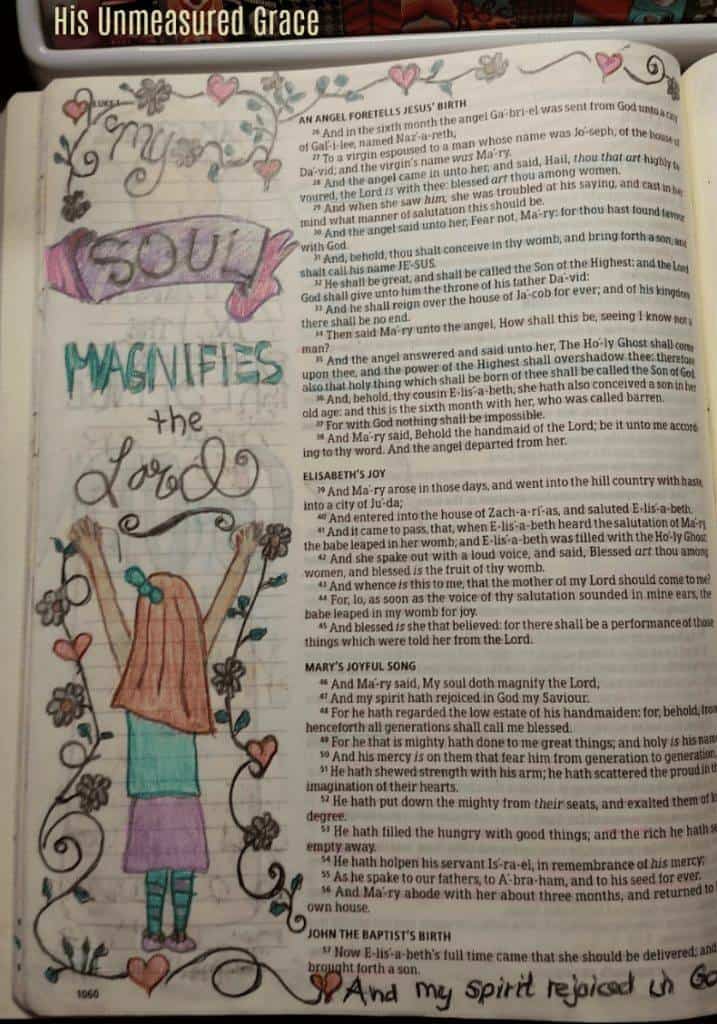 His Unmeasured Grace
LUKE 1
My
SOUL
MAGNIFIES
the
Lord
AN ANGEL FORETELLS JESUS' BIRTH
26 And in the sixth month the angel Ga´-bri-el was sent from God unto a city
of Gal´-i-lee, named Naz´-a-reth;
27 To a virgin espoused to a man whose name was Jo´-seph, of the house of
Da´-vid; and the virgin's name was Ma´-ry.
28 And the angel came in unto her, and said, Hail, thou that art highly fa
voured, the Lord is with thee: blessed art thou among women.
29 And when she saw him, she was troubled at his saying, and cast in her
mind what manner of salutation this should be.
30 And the angel said unto her, Fear not, Ma´-ry: for thou hast found favour
with God.
31 And, behold, thou shalt conceive in thy womb, and bring forth a son, and
shalt call his name JE-SUS.
32 He shall be great, and shall be called the Son of the Highest: and the Lord
God shall give unto him the throne of his father Da´-vid:
33 And he shall reign over the house of Ja´-cob for ever; and of his kingdom
there shall be no end.
34 Then said Ma´-ry unto the angel, How shall this be, seeing I know not a
man?
35 And the angel answered and said unto her, The Ho´-ly Ghost shall come
upon thee, and the power of the Highest shall overshadow thee: therefore
also that holy thing which shall be born of thee shall be called the Son of God.
36 And, behold, thy cousin E-lis´-a-beth, she hath also conceived a son in her
old age: and this is the sixth month with her, who was called barren.
37 For with God nothing shall be impossible.
38 And Ma´-ry said, Behold the handmaid of the Lord; be it unto me accord
ing to thy word. And the angel departed from her.
ELISABETH'S JOY
39 And Ma´-ry arose in those days, and went into the hill country with haste,
into a city of Ju´-da;
40 And entered into the house of Zach-a-rí-as, and saluted E-lis´-a-beth.
41 And it came to pass, that, when E-lis´-a-beth heard the salutation of Ma´-ry,
the babe leaped in her womb; and E-lis´-a-beth was filled with the Ho´-ly Ghost:
42 And she spake out with a loud voice, and said, Blessed art thou among
women, and blessed is the fruit of thy womb.
43 And whence is this to me, that the mother of my Lord should come to me?
44 For, lo, as soon as the voice of thy salutation sounded in mine ears, the
babe leaped in my womb for joy.
45 And blessed is she that believed: for there shall be a performance of those
things which were told her from the Lord.
MARY'S JOYFUL SONG
46 And Ma´-ry said, My soul doth magnify the Lord,
47 And my spirit hath rejoiced in God my Saviour.
48 For he hath regarded the low estate of his handmaiden: for, behold, from
henceforth all generations shall call me blessed.
49 For he that is mighty hath done to me great things; and holy is his name
50 And his mercy is on them that fear him from generation to generation.
51 He hath shewed strength with his arm; he hath scattered the proud in the
imagination of their hearts.
52 He hath put down the mighty from their seats, and exalted them of
degree.
53 He hath filled the hungry with good things; and the rich he hath
empty away.
54 He hath holpen his servant Is´-ra-el, in remembrance of his mercy;
55 As he spake to our fathers, to A´-bra-ham, and to his seed for ever.
56 And Ma´-ry abode with her about three months, and returned to
own house.
JOHN THE BAPTIST'S BIRTH
57 Now E-lis´-a-beth's full time came that she should be delivered; and
brought forth a son.
And my spirit rejoiced in
1060